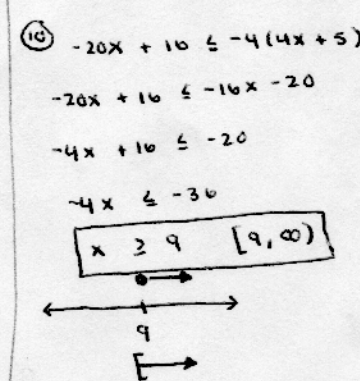 16 -20x + 16 ≤ -4(4x + 5)
-20x + 16 ≤ -16x - 20
-4x + 16 ≤ -20
-4x ≤ -36
x ≥ 9 [9, ∞)
9
[